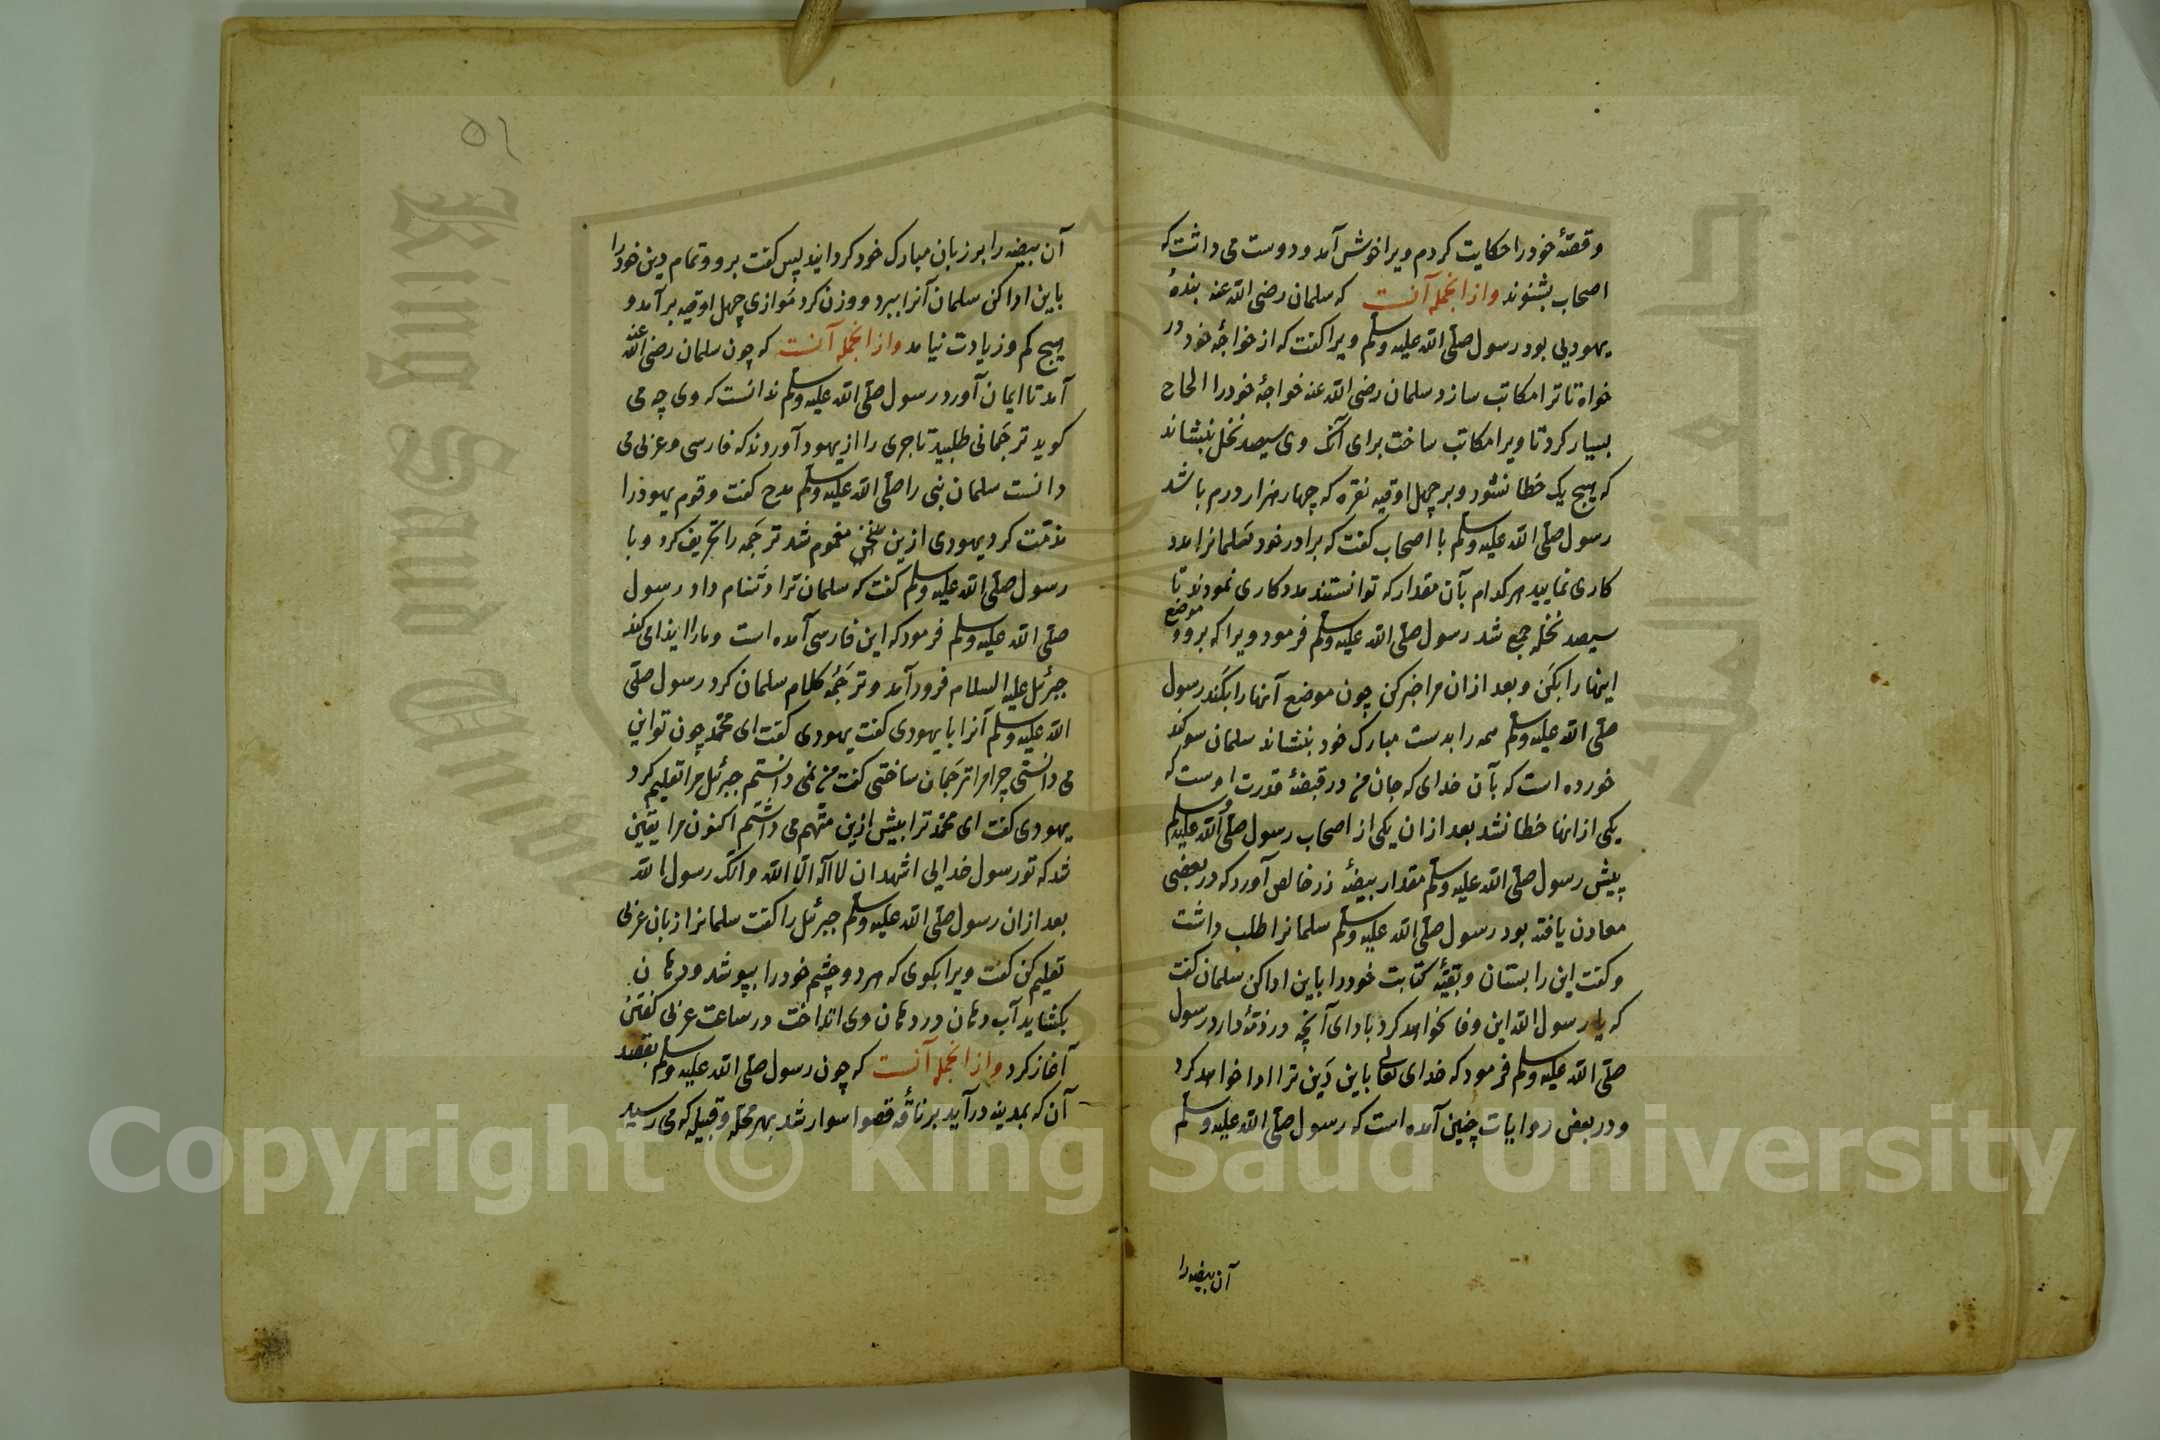 و قصّهٔ خود را حکایت کردم ویرا خوش آمد و دوست می داشت که
اصحاب بشنوند وازانجمله آنست که سلمان رضی الله عنه بندهٔ
یهودیی بود رسول صلّی الله علیه وسلّم ویرا کفت که از خواجهٔ خود در
خواه تا ترا مکاتب سازد سلمان رضی الله عنه خواجهٔ خود را الحاح
بسیار کرد تا ویرا مکاتب ساخت برای آنک وی سیصد نخل بنشاند
که هیچ یک خطا نشود و بر چهل اوقیه نقره که چهار هزار درم باشد
رسول صلّی الله علیه وسلّم با اصحاب کفت که برادر خود سلمانرا مدد
کاری نمایید هر کدام بآن مقدار که توانستند مدد کاری نمودند تا
سیصد نخله جمع شد رسول صلّی الله علیه وسلّم فرمود ویرا که برو و موضع
اینها را بکَن و بعد ازان مرا خبر کن چون موضع آنها را بکَند رسول
صلّی الله علیه وسلّم همه را بدست مبارک خود بنشاند سلمان سوکند
خورده است که بآن خدای که جان من در قبضهٔ قدرت اوست که
یکی از انها خطا نشد بعد ازان یکی از اصحاب رسول صلّی الله علیه وسلّم
پیش رسول صلّی الله علیه وسلّم مقدار بیضهٔ زر خالص آورد که در بعضی
معادن یافته بود رسول صلّی الله علیه وسلّم سلمانرا طلب داشت
و کفت این را بستان و بقیّهٔ کتابت خود را باین ادا کن سلمان کفت
که یا رسول الله این وفا نخواهد کرد بادای آنچه در ذمّهٔ دارد رسول
صلّی الله علیه وسلّم فرمود که خدای تعالی باین دَین ترا ادا خواهد کرد
و در بعضی روایات چنین آمده است که رسول صلّی الله علیه وسلّم
آن بیضه را
٥١
آن بیضه را بر زبان مبارک خود کردانید پس کفت برو و تمام دین خود را
باین ادا کن سلمان آنرا ببرد و وزن کرد موازی چهل اوقیه بر آمد و
هیچ کم و زیادت نیامد وازانجمله آنست که چون سلمان رضی الله عنه
آمد تا ایمان آورد رسول صلّی الله علیه وسلّم ندانست که وی چه می
کوید ترجمانی طلبید تاجری را از یهود آوردند که فارسی و عربی می
دانست سلمان نبی را صلّی الله علیه وسلّم مدح کفت و قوم یهود را
مذمّت کرد یهودی ازین سخن مغموم شد ترجَمه را تحریف کرد و با
رسول صلّی الله علیه وسلّم کفت که سلمان ترا دشنام داد رسول
صلّی الله علیه وسلّم فرمود که این فارسی آمده است و ما را ایذا می کند
جبرئیل علیه السلام فرود آمد و ترجَمهٔ کلام سلمان کرد رسول صلّی
الله علیه وسلّم آنرا با یهودی کفت یهودی کفت ای محمّد چون تو این
می دانستی چرا مرا ترجَمان ساختی کفت من نمی دانستم جبرئیل مرا تعلیم کرد
یهودی کفت ای محمّد ترا پیش ازین متّهم می داشتم اکنون مرا یقین
شد که تو رسول خدایی اشهد ان لا اله الّا الله وانّک رسول الله
بعد ازان رسول صلّی الله علیه وسلّم جبرئیل را کفت سلمانرا زبان عربی
تعلیم کن کفت ویرا بکوی که هر دو چشم خود را بپوشد و دهان
بکشاید آب دهان در دهان وی انداخت در ساعت عربی کفتن
آغاز کرد وازانجمله آنست که چون رسول صلّی الله علیه وسلّم بقصد
آن که بمدینه درآید بر ناقهٔ قصوا سوار شد بهر محلّه و قبیله که می رسید
King Saud
Copyright © King Saud University